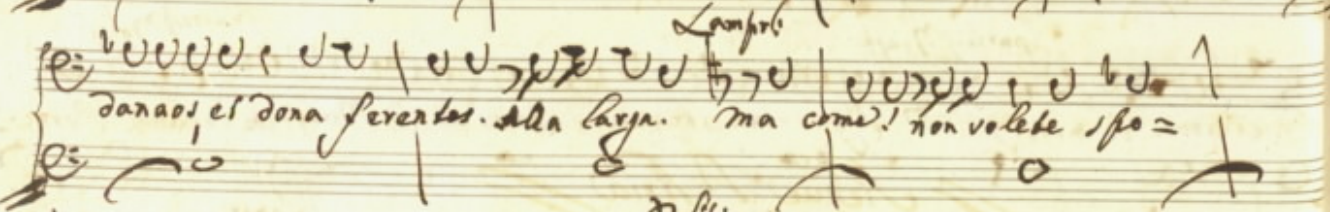 Lampr:
danaos et dona ferentes. Alla larga. ma come! non volete spo=